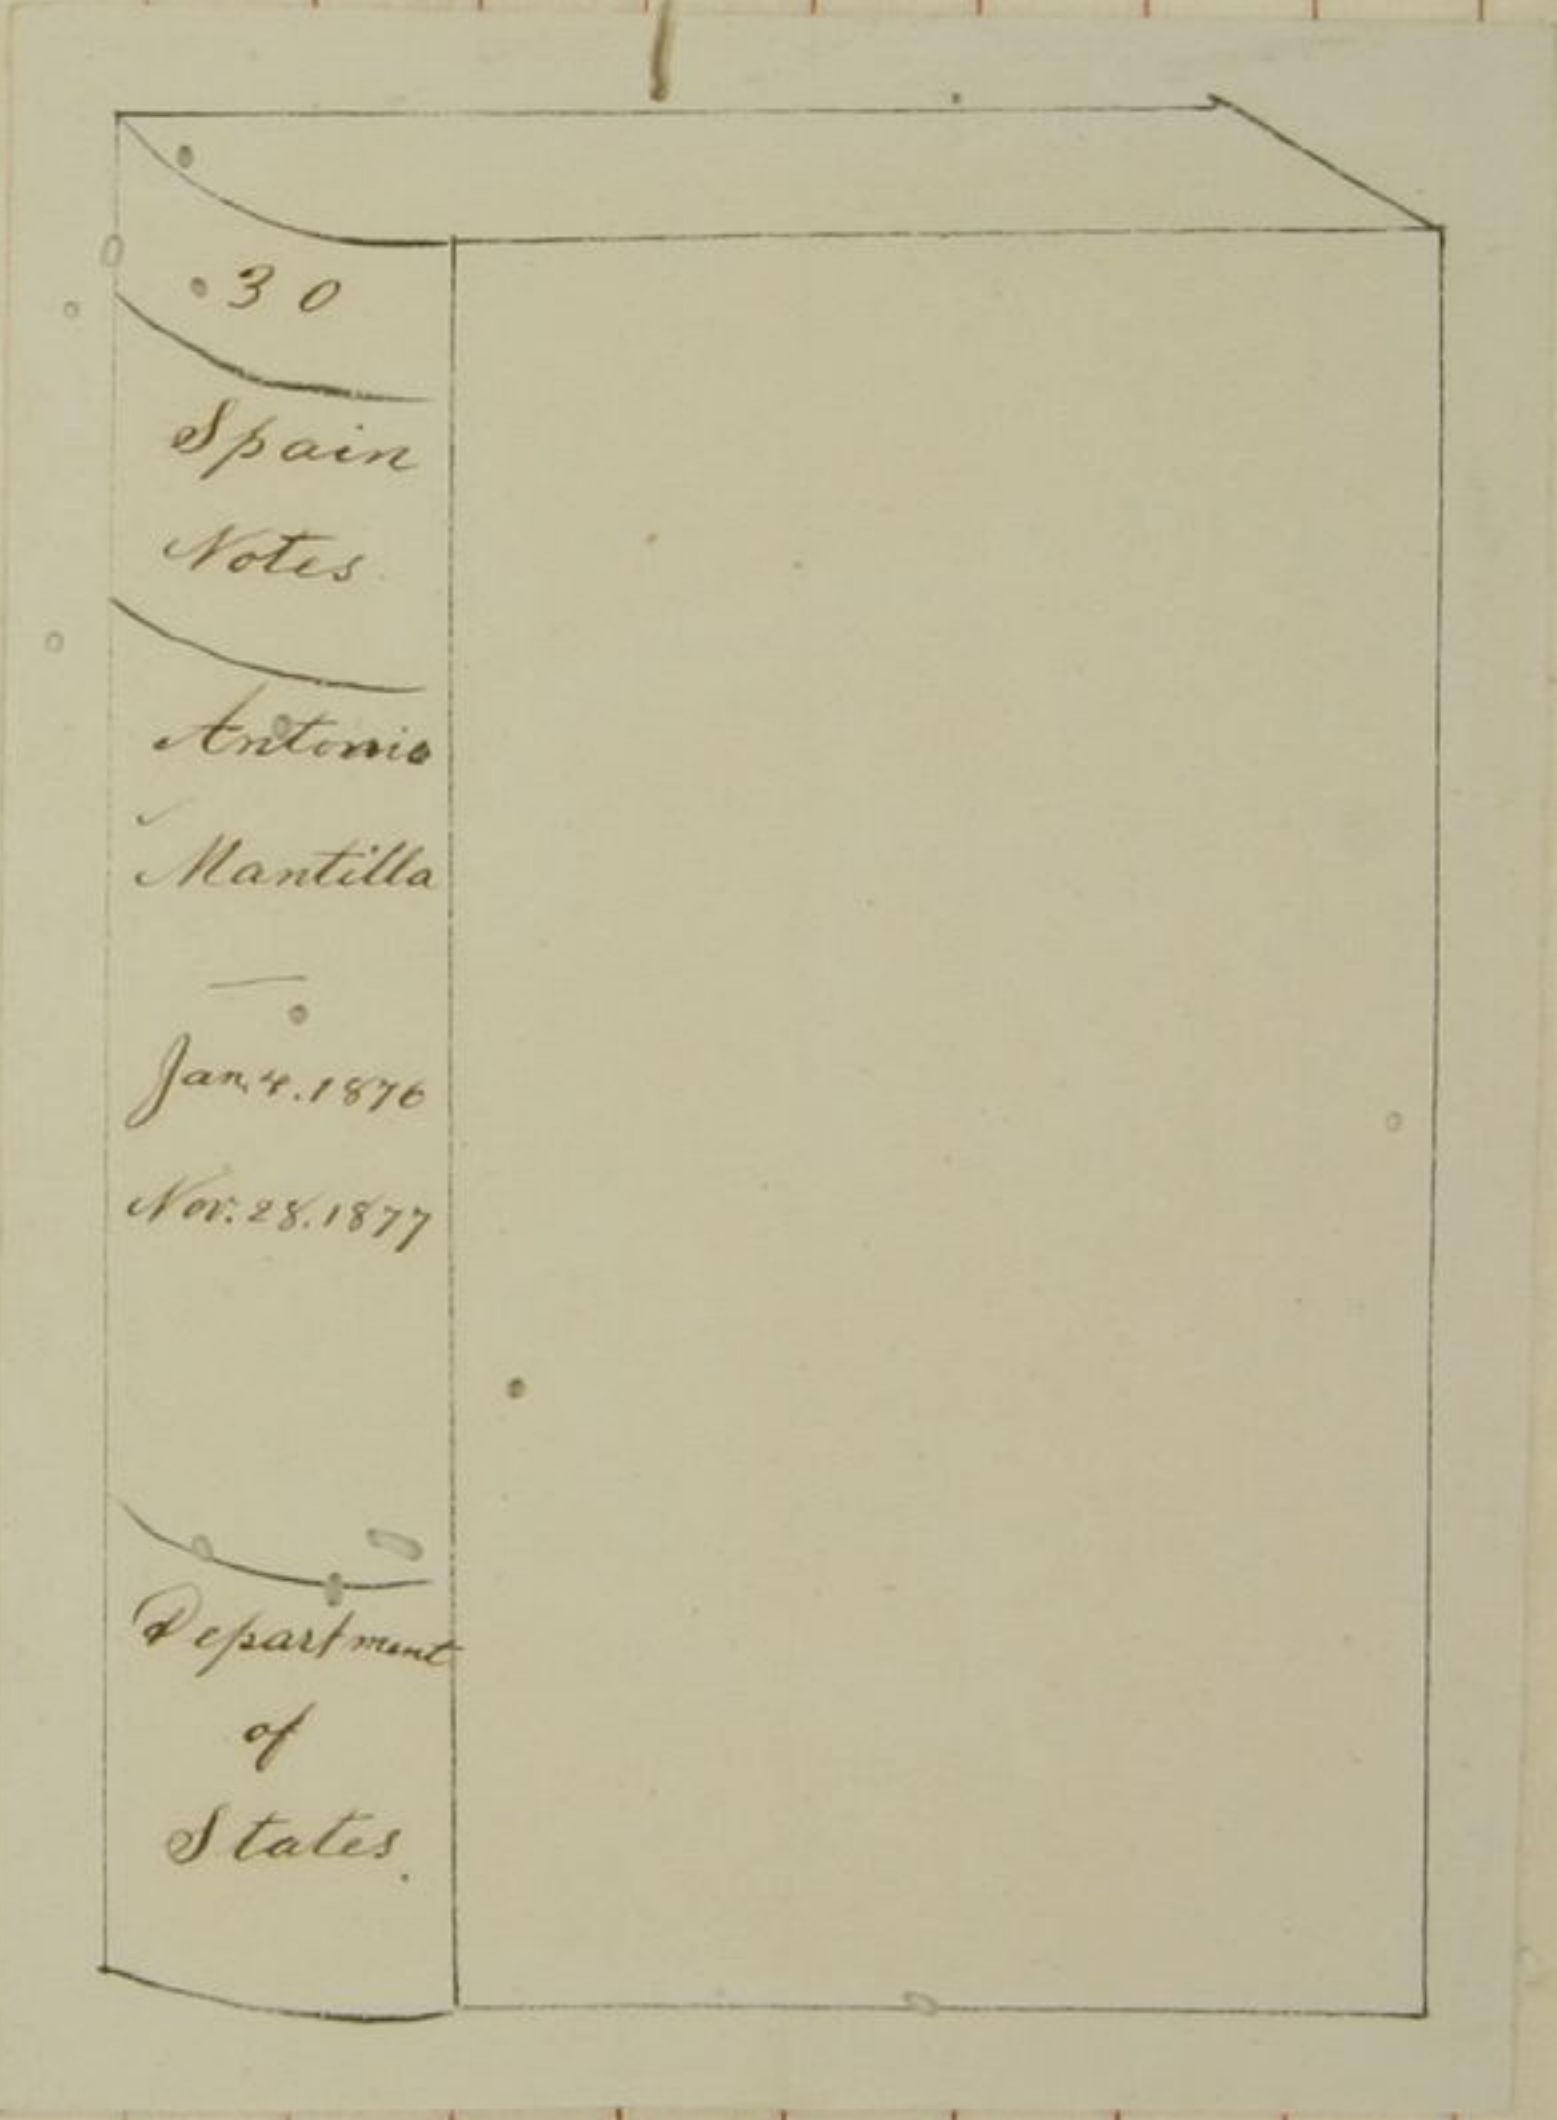 30
Spain
Notes
Antonio
Mantilla
Jan. 4. 1876
Nov. 28. 1877
Department
of
States.